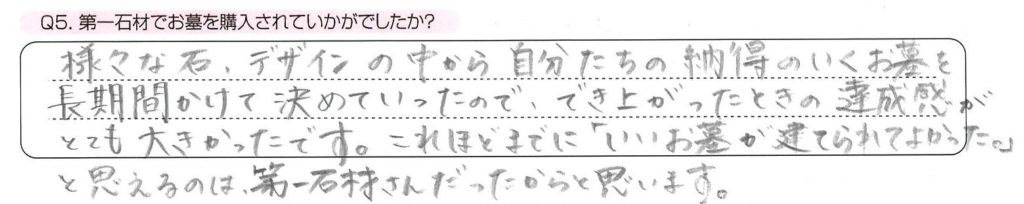 Q5. 第一石材でお墓を購入されていかがでしたか?
様々な石、デザインの中から自分たちの納得のいくお墓を
長期間かけて決めていったので、でき上がったときの達成感が
とても大きかったです。これほどまでに「いいお墓が建てられてよかった。」
と思えるのは、第一石材さんだったからと思います。